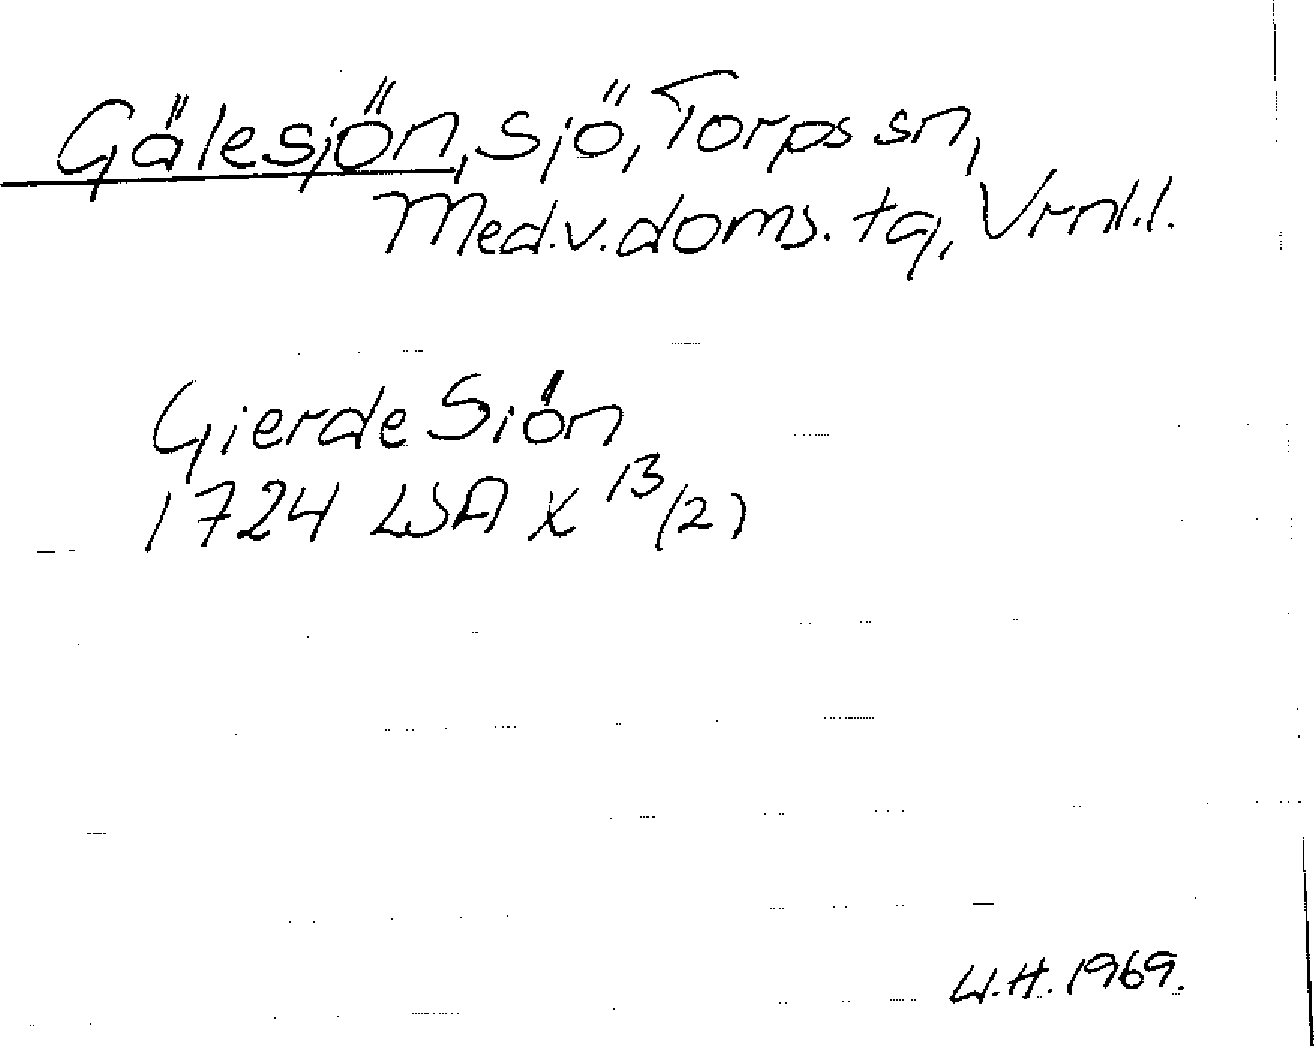 Gälesjön, sjö, Torps sn,
Med.v.doms.tg, Vrnl.l.
Gierde Siön
1724 LSA X 13/(2)
W.H. 1969.